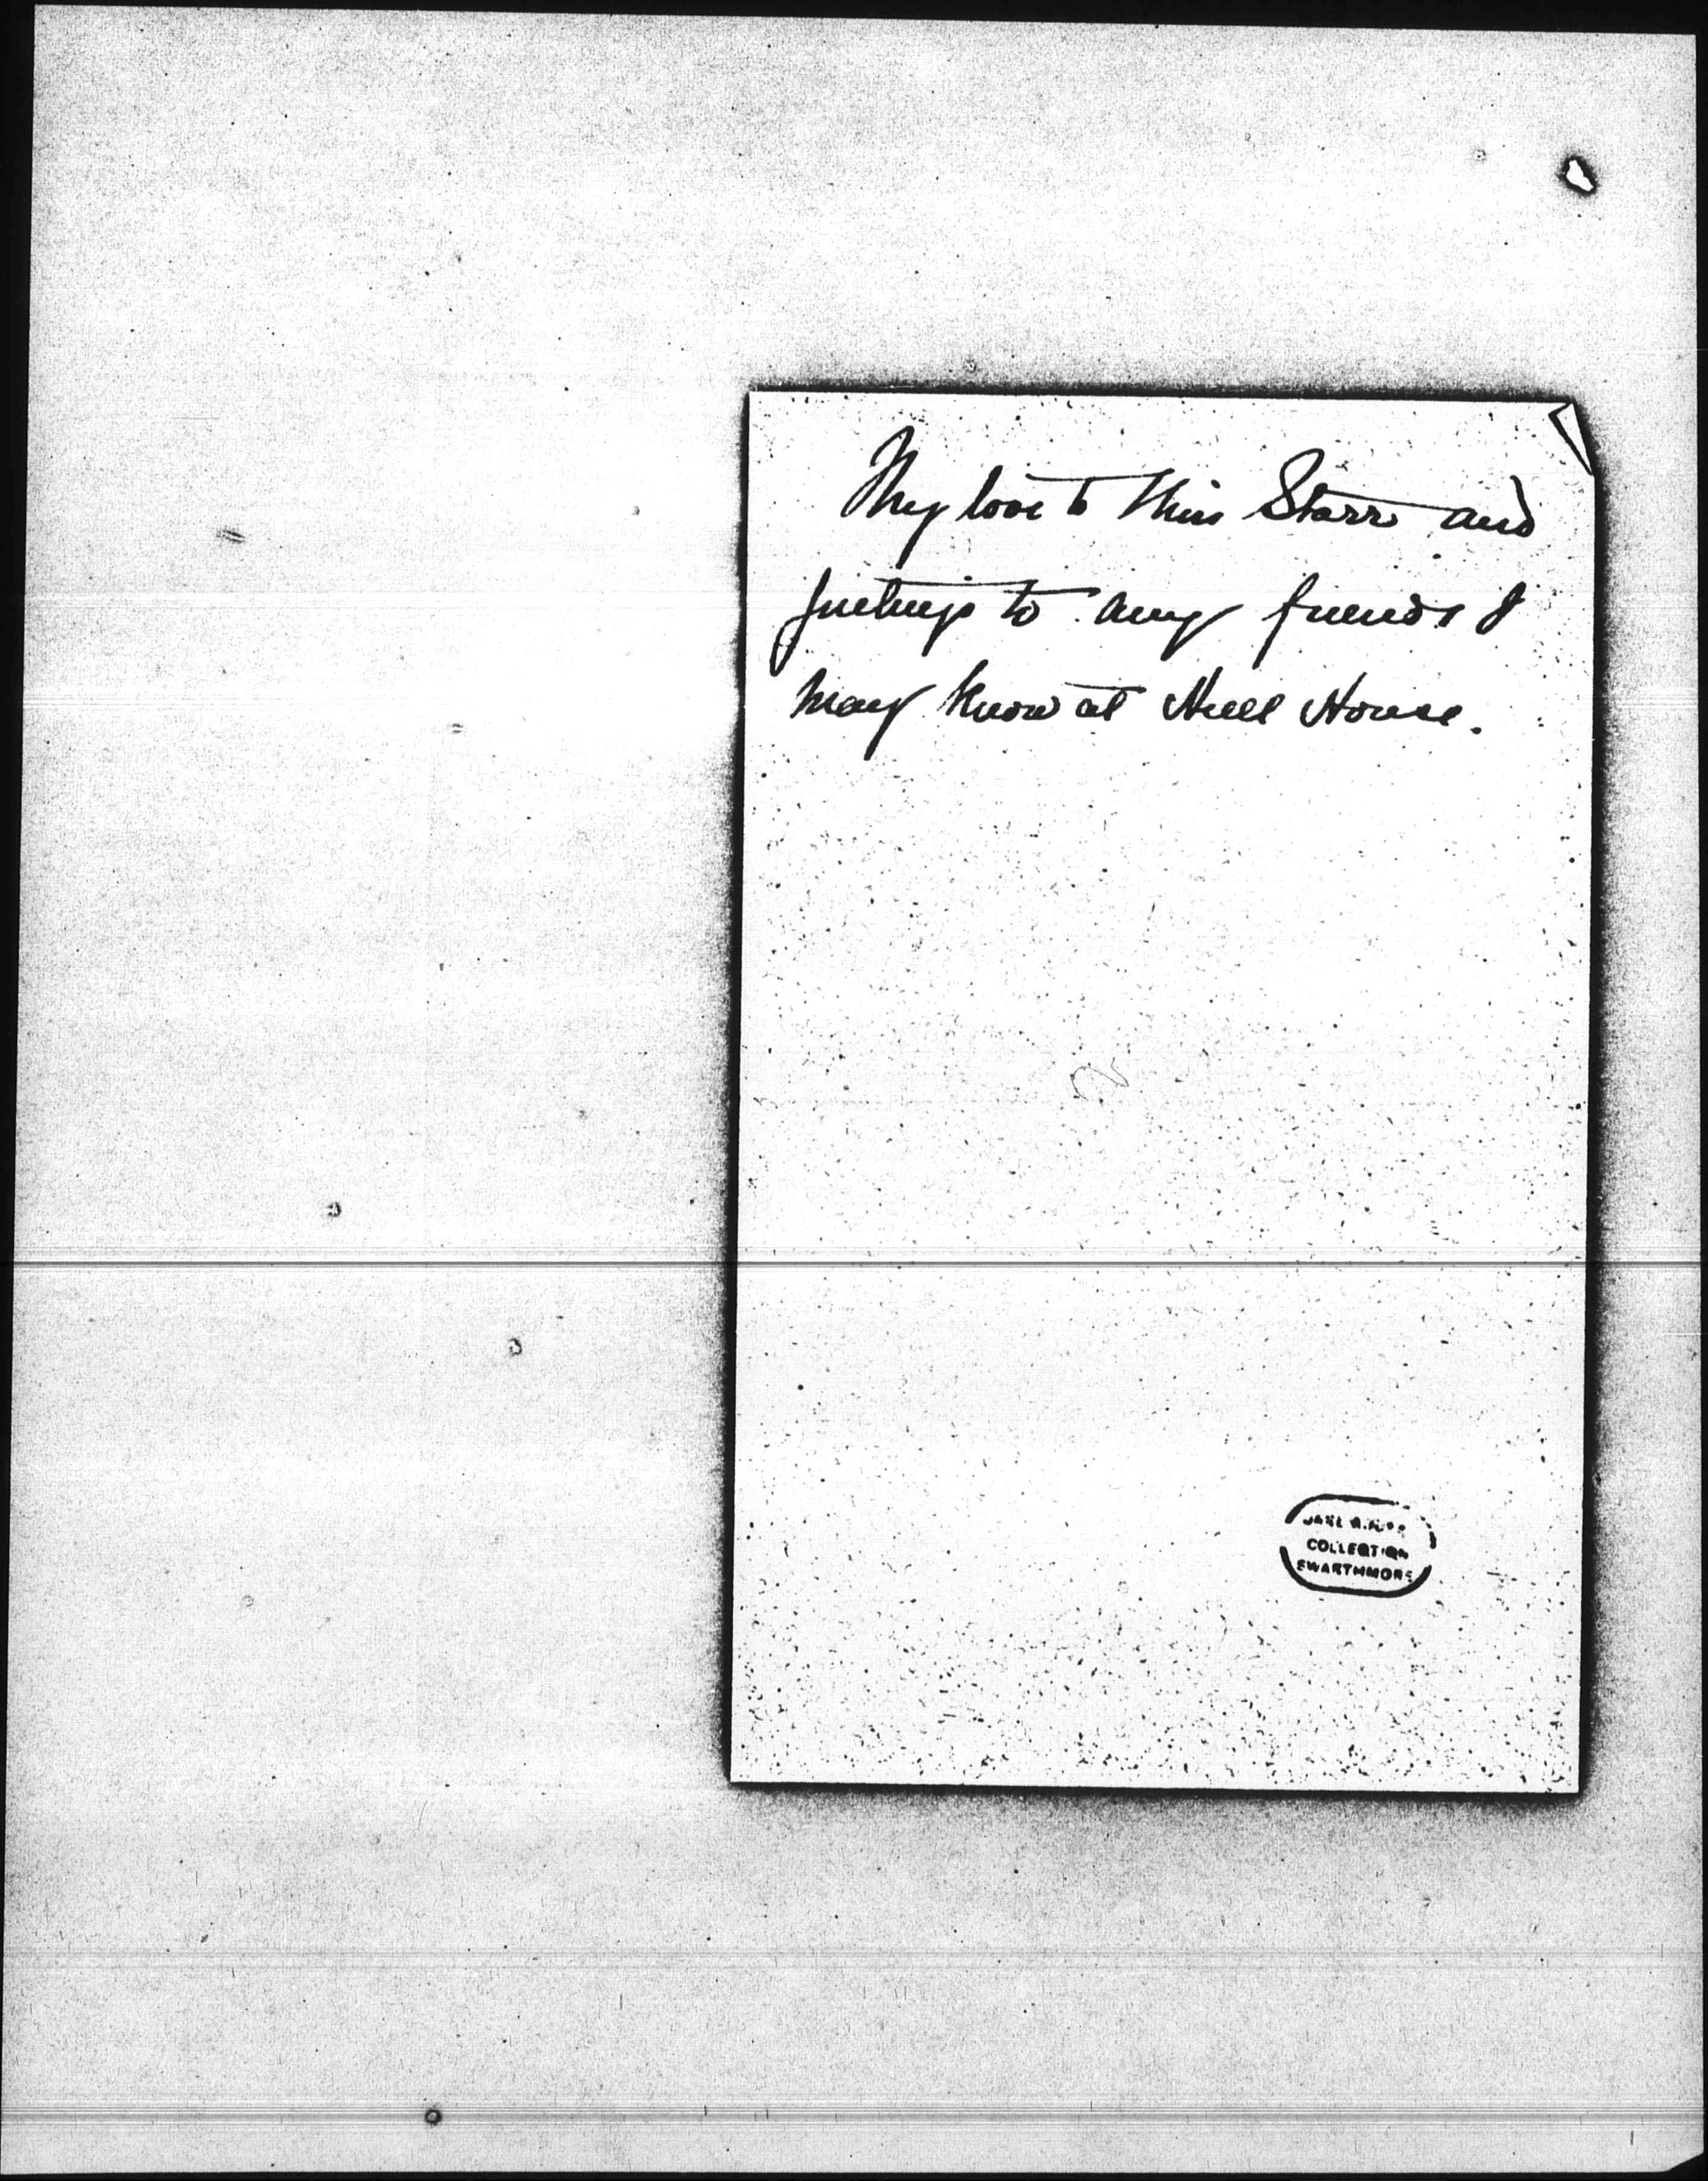 My love to Miss Starr and
greetings to any friends I
may know at Hull House.
JANE ADDAMS
COLLECTION
SWARTHMORE